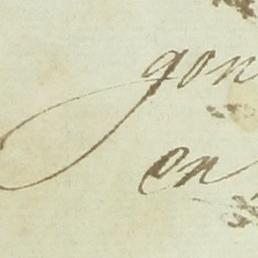 gon
en